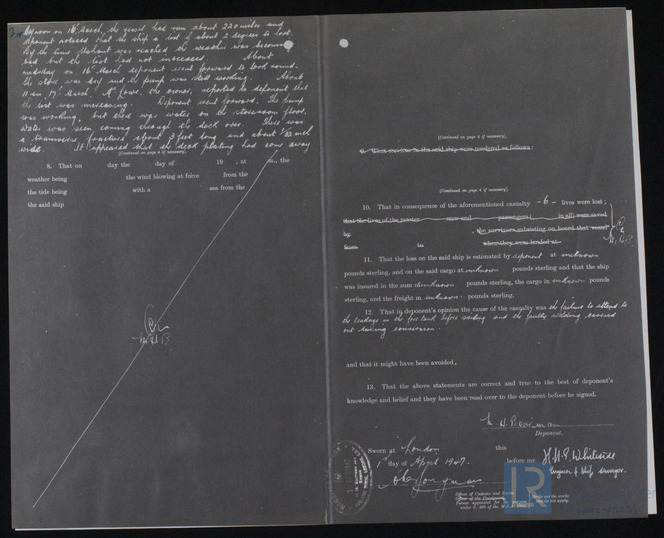 noon on 16th March, the vessel had run about 220 miles and
deponent noticed that the ship a list of about 2 degrees to port.
By the time was reached the weather was
bad but the list had not increased. About
midday on 16th March deponent went forward to look round.
The store was dry and the pump was still working. About
11 am 17th March, Mr Lowe, the owner, reported to deponent that
the list was increasing. Deponent went forward. The pump
was working, but there was water on the storeroom floor.
Water was seen coming through the deck over. There was
a fracture about 3 feet long and about 1/32 inch
wide. It appeared that the deck plating had come away
(Continued on page 4 if necessary).
8. That on day the day of 19 , at m, the
weather being the wind blowing at force from the
the tide being with a sea from the
the said ship
(Continued on page 4 if necessary).
9. That services to the said ship were rendered as follows:
(Continued on page 4 if necessary).
10. That in consequence of the aforementioned casualty -6- lives were lost;
that the lives of the master crew and passengers ( in all) were saved
by , the survivors subsisting on board that vessel
from to when they were landed at
11. That the loss on the said ship is estimated by deponent at unknown
pounds sterling, and on the said cargo at unknown pounds sterling and that the ship
was insured in the sum of unknown pounds sterling, the cargo in unknown pounds
sterling, and the freight in unknown pounds sterling.
12. That in deponent's opinion the cause of the casualty was the failure to attend to
the leakage in the fore tank before sailing and the faulty welding carried
out during conversion.
and that it might have been avoided.
13. That the above statements are correct and true to the best of deponent's
knowledge and belief and they have been read over to the deponent before he signed.
Deponent.
Sworn at London this
1st day of April 1947. before me H.H.E. Whiteside
Engineer & Ship Surveyor.
Officer of Customs and Excise
LR